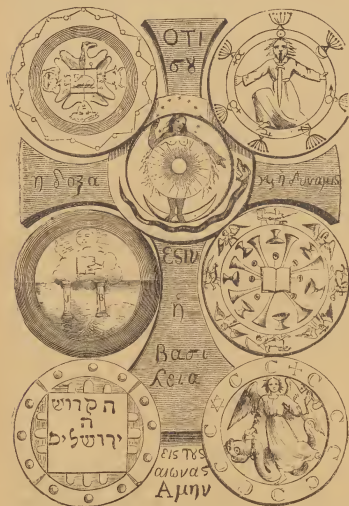 ΟΤΙ
συ
η δοξα
ϗ η δυναμις
ESIV
ή
Βασι
λεια
הקדוש
ה
ירושלימ
εις τυς
αιωνας
Αμην